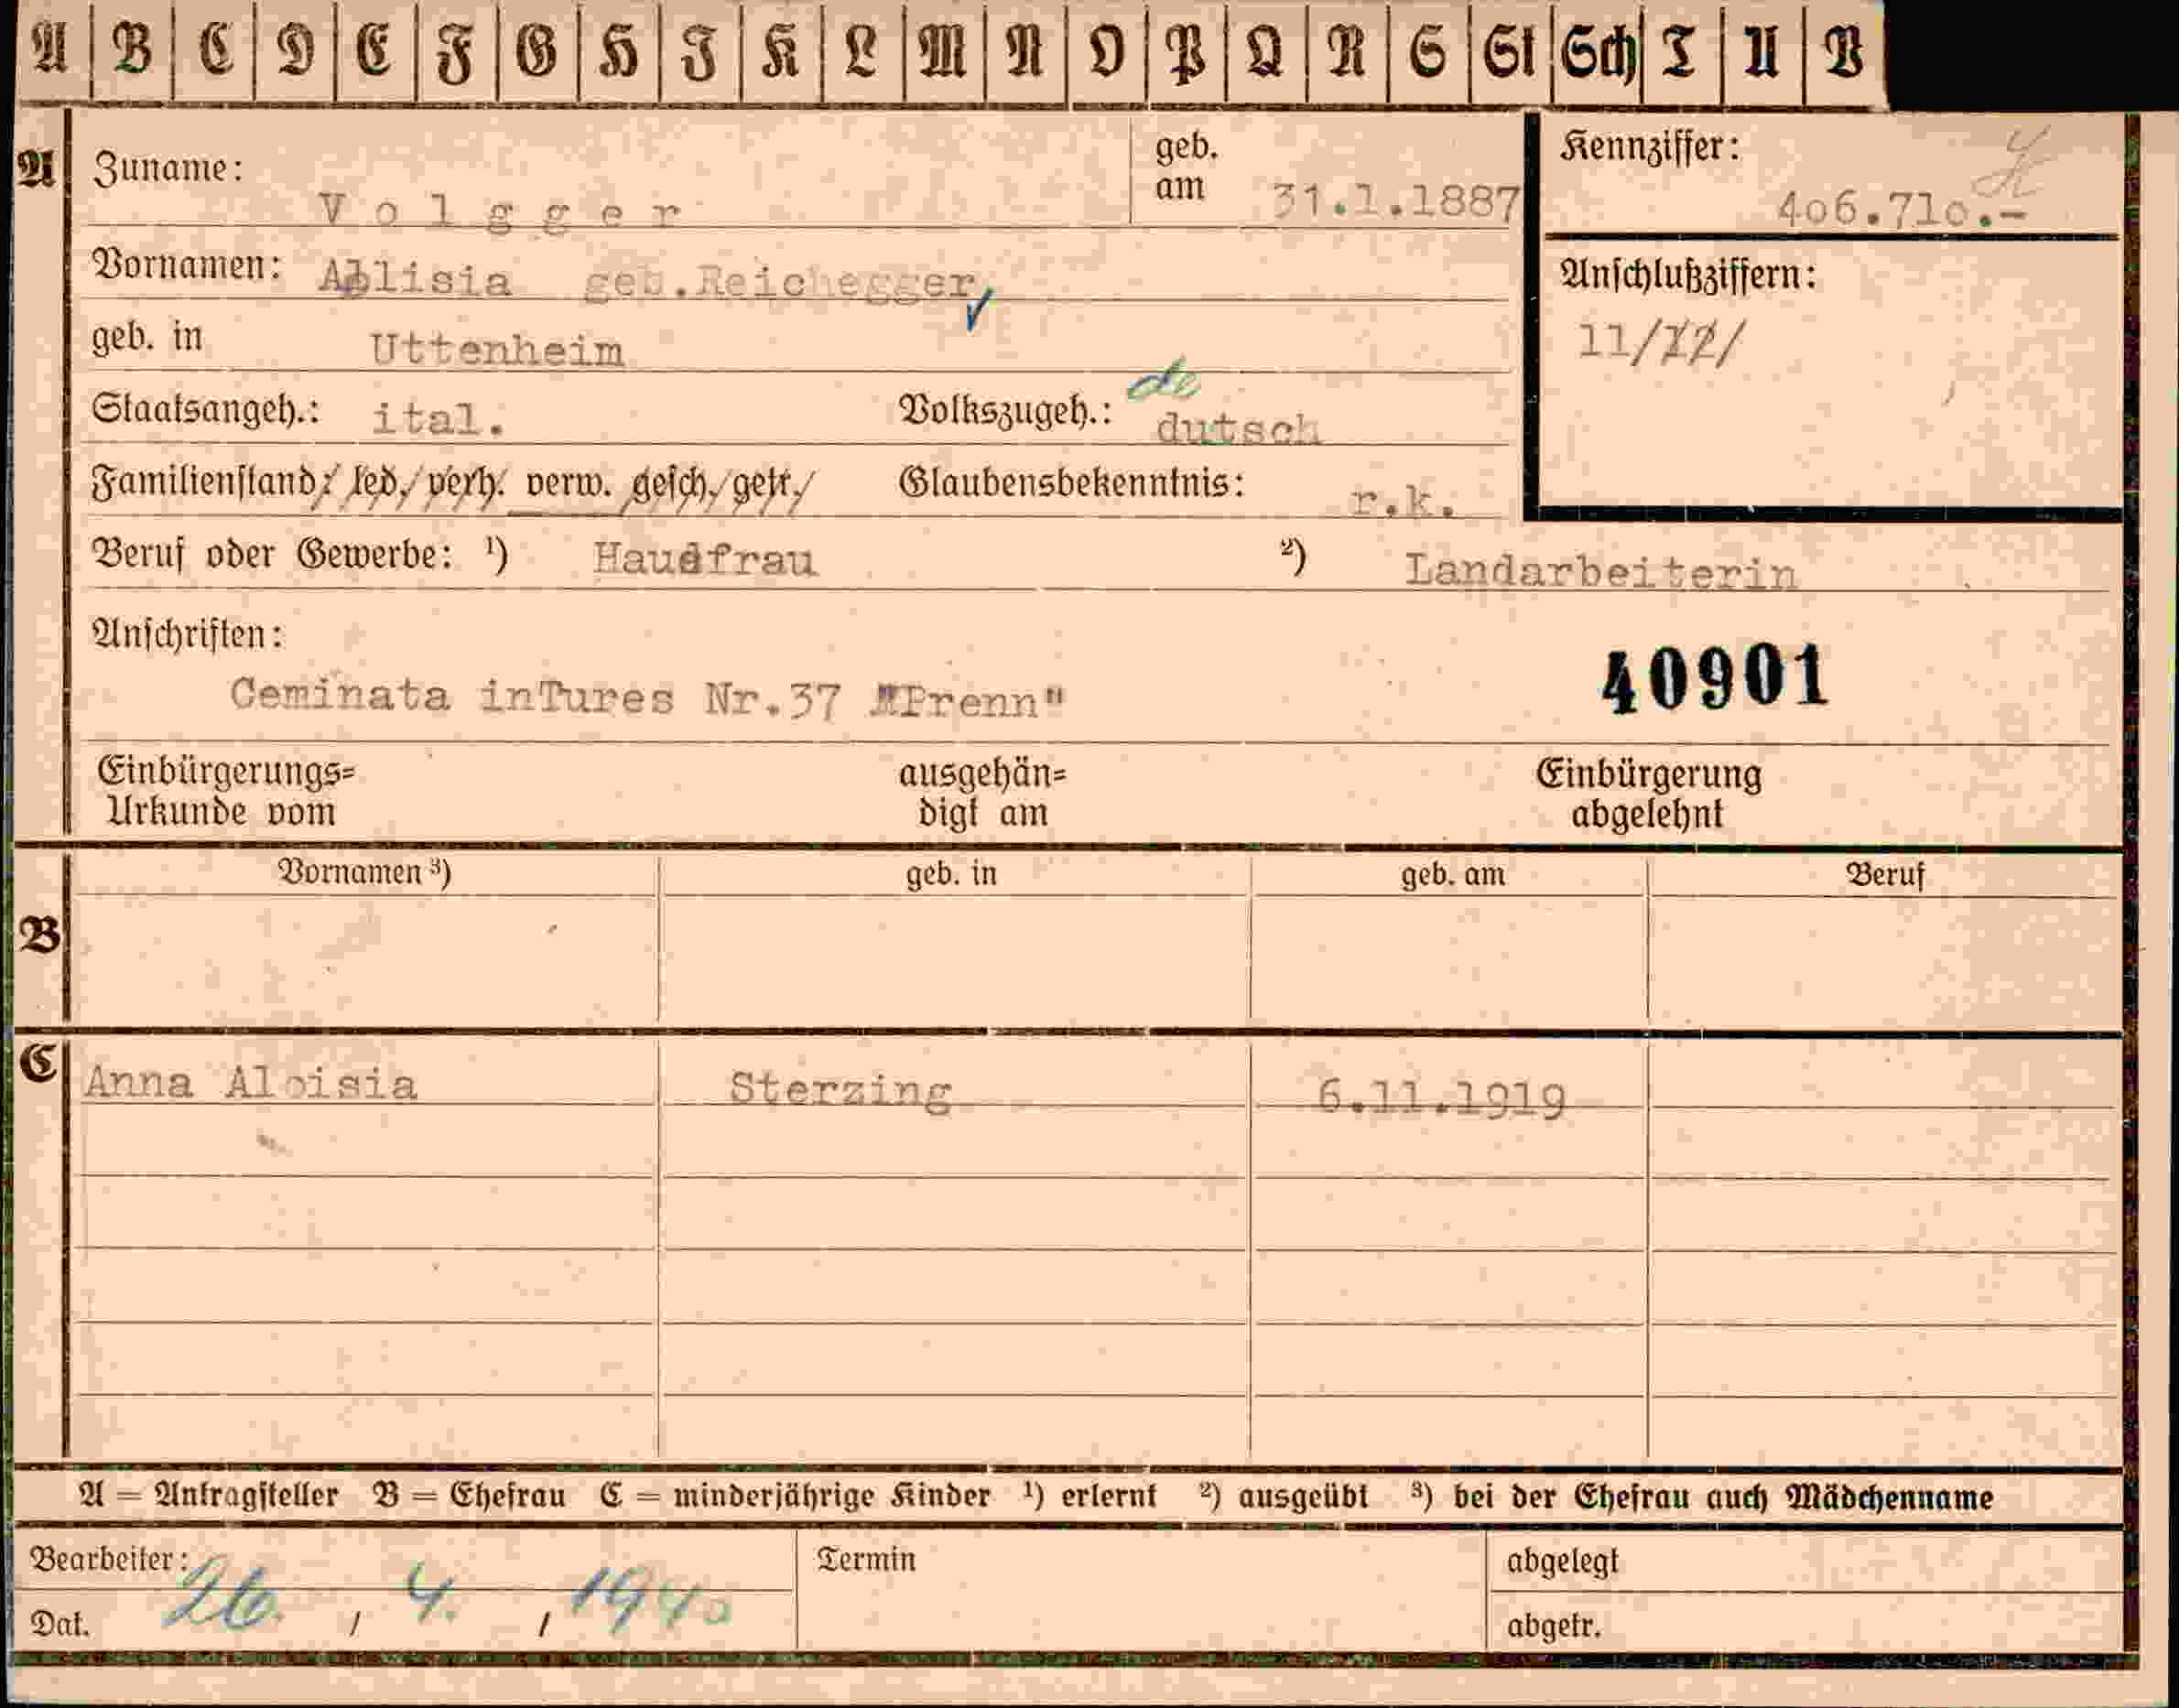 A B C D E F G H J K L M N O P Q R S St Sch T U V
A Zuname: Volgger geb. am 31.1.1887 Kennziffer: 4o6.71o.-
Vornamen: Alisia geb.Reichegger Anschlußziffern:
11/
geb. in Uttenheim
Staatsangeh.: ital. Volkszugeh.: de dutsch
Familienstand: led. verh. verw. gesch. getr. Glaubensbekenntnis: r.k.
Beruf oder Gewerbe: ¹) Hausfrau ²) Landarbeiterin
Anschriften:
Ceminata inTures Nr.37 "Prenn" 40901
Einbürgerungs= Urkunde vom ausgehän= digt am Einbürgerung abgelehnt
Vornamen ³) geb. in geb. am Beruf
B
C Anna Aloisia Sterzing 6.11.1919
A = Antragsteller B = Ehefrau C = minderjährige Kinder ¹) erlernt ²) ausgeübt ³) bei der Ehefrau auch Mädchenname
Bearbeiter: Termin abgelegt
Dat. 26. / 4. / 1940 abgetr.